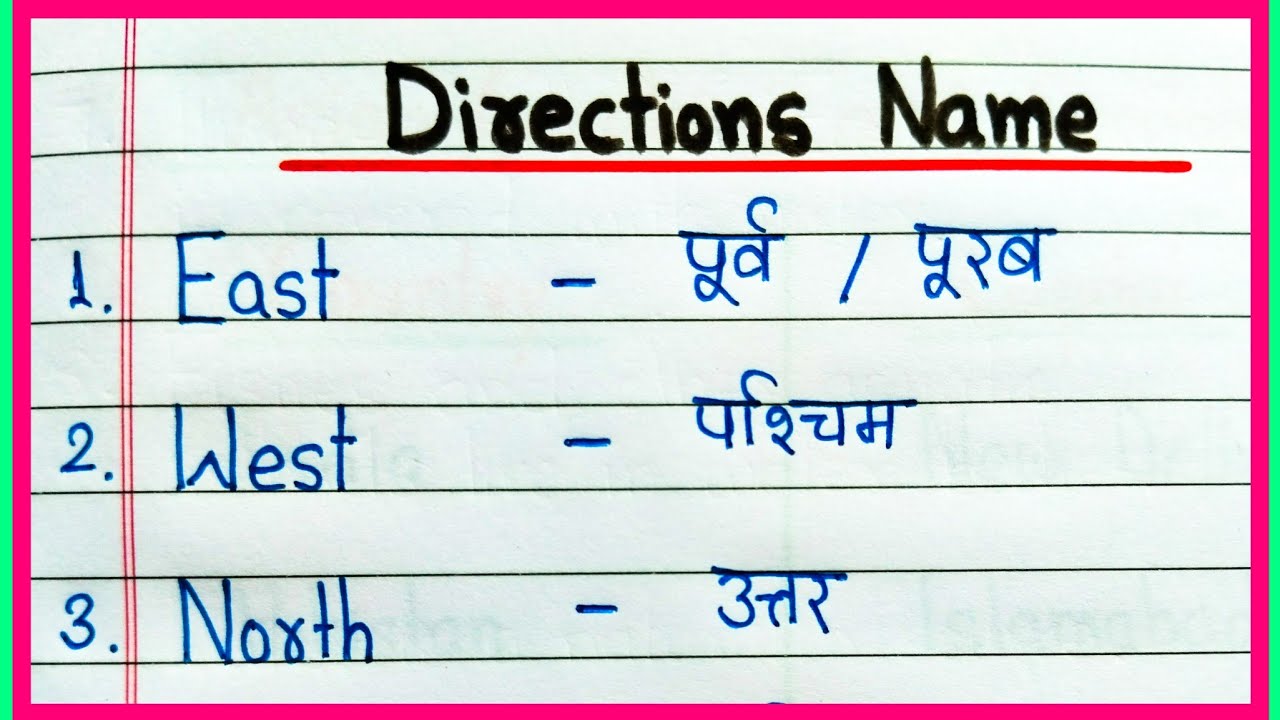 Directions Name
1. East - पूर्व / पूरब
2. West - पश्चिम
3. North - उत्तर